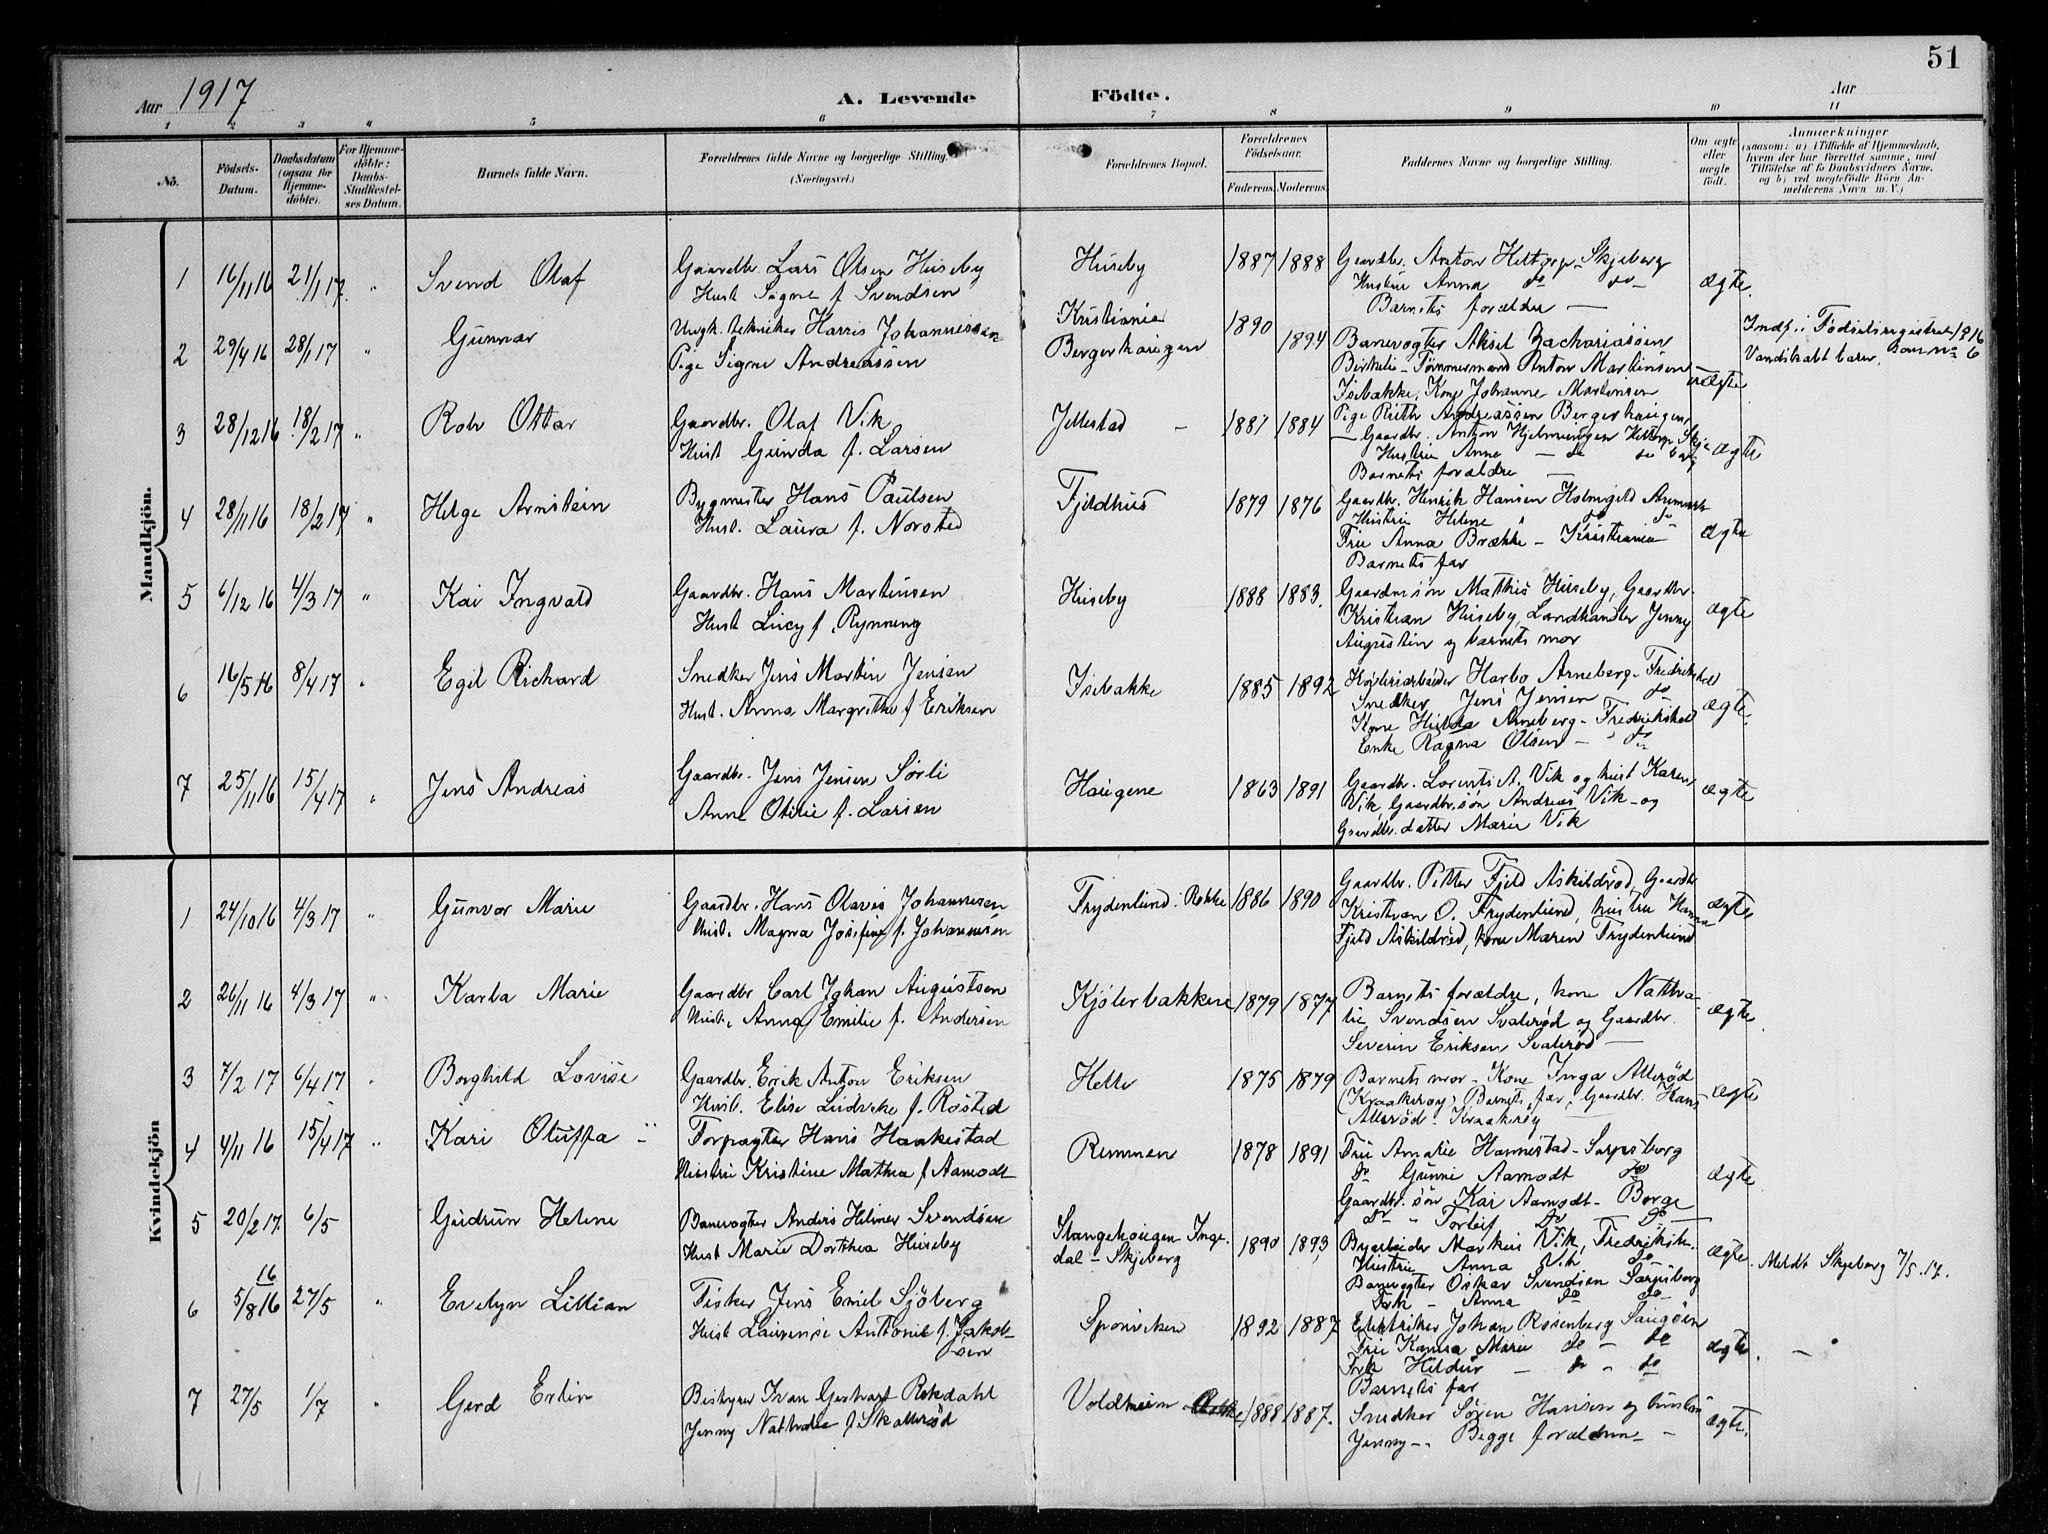 51
Aar 1917
A. Levende Födte.
Aar
1 2 3 4 5 6 7 8 9 10 11
No.
Födsels-Datum.
Daabsdatum (ogsaa for Hjemmedöbte).
For Hjemmedöbte: Daabs-Stadfæstelses Datum.
Barnets fulde Navn.
Forældrenes fulde Navne og borgerlige Stilling. (Næringsvei.)
Forældrenes Bopæl.
Forældrenes Födselsaar.
Faderens. Moderens.
Faddernes Navne og borgerlige Stilling.
Om ægte eller uægte födt.
Anmærkninger
(saasom: a) i Tilfælde af Hjemmedaab, hvem der har forrettet samme, med Tilföielse af to Daabsvidners Navne, og b) ved uægtefödte Börn Anmelderens Navn m. V.)
Mandkjön.
1 16/11 16 21/1 17 " Svend Olaf
Gaardbr. Lars Olsen Huseby
Hust Signe f Svendsen
Huseby 1887 1888
Gaardbr. Anton Heltorp - Skjeberg
Hustru Anna do do
Barnets forældre —
ægte.
2 29/4 16 28/1 17 " Gunnar
Ungk. tekniker Harris Johannessen
Pige Signe Andreassen
Kristiania
Bergerhaugen
1890 1894
Banevogter Aksel Zachariassen
Tømmermand Anton Martinsen
Isebakke, Kone Johanne Martinsen
Pige Ruth Andreassen Bergerhaugen,
uægte
Indf. i Födselsregistret 1916
Vandskabt barn. som No 6
3 28/12 16 18/2 17 " Rolv Ottar
Gaardbr. Olaf Vik
Hust Gunda f. Larsen
Jellestad - 1881 1884
— Gaardbr. Anton Heltorp Skje
Hustru Anna — do do berg
Barnets forældre —
ægte
4 28/11 16 18/2 17 " Helge Arnstein
Bygmester Hans Paulsen
Hust. Laura f. Norsted
Fjeldhus 1879 1876
Gaardbr. Henrik Hansen Holmgild Aremark
Hustru Helene " do do
Fru Anna Brække - Kristiania
Barnets far
ægte
5 6/12 16 4/3 17 " Kai Ingvald
Gaardbr. Hans Martinsen
Hust Lucy f. Rynning
Huseby 1888 1883.
Gaardmsøn Matthis Huseby, Gaardbr.
Kristian Huseby, Landhandler Jenny
Augustin og barnets mor
ægte
6 16/5 16 8/4 17 " Egil Richard
Snedker Jens Martin Jensen
Hust. Anna Margrethe f Eriksen
Isebakke 1885 1892
Harbo Arneberg - Fredrikshald
Snedker Jens Jensen do
Kone Hulda Arneberg - Fredrikshald
Enke Ragna Olsen - " do
ægte.
7 25/11 16 15/4 17 " Jens Andreas
Gaardbr. Jens Jensen Sørli
Anne Otilie f. Larsen
Haugene 1863 1891
Gaardbr. Lorents A. Vik og hust Karen
Vik, Gaardbr.søn Andreas Vik - og
Gaardbr. datter Marie Vik
ægte
Kvindekjön
1 24/10 16 4/3 17 " Gunvor Marie
Gaardbr. Hans Olavis Johannesen
Hust. Magna Josefine f. Johannesen
Frydenlund. Rokke 1886 1890
Gaardbr. Petter Fjeld Askildrød, Gaardbr
Kristian O. Frydenlund, hustru Hanna
Fjeld Askildrød, kone Maren Frydenlund
ægte
2 26/11 16 4/3 17 " Karla Marie
Gaardbr Carl Johan Augustsen
Hust. Anna Emilie f. Andersen
Kjølerbakkene 1879 1877.
Barnets forældre, kone Natha-
lie Svendsen Svalerød og Gaardbr.
Severin Eriksen Svalerød —
ægte
3 7/2 17 6/4 17 " Borghild Lovise
Gaardbr. Erik Anton Eriksen
Hust. Elise Ludvike f. Røsted
Helle 1875 1879
Barnets mor - Kone Inga Allerød
(Kraakerøy) Barnets far, Gaardbr. Hans
Allerød. Kraakerøy
ægte
4 4/11 16 15/4 17 " Kari Oluffa
Forpagter Hans Haakestad
Hustru Kristine Mathea f Aamodt
Remmen 1878 1891
Fru Amalie Hannestad - Sarpsborg
do Gunni Aamodt do
Gaardbr. søn Kai Aamodt - Borge
do " Torleif do do
ægte
5 20/2 17 6/5 Gudrun Helene
Banevogter Anders Hilmer Svendsen
Hust Marie Dorthea Huseby
Stangehaugen - Inge-
dal - Skjeberg
1890 1893
Byarbeider Markus Vik, Fredriksh.
Hustru Anna Vik do
Banevogter Oskar Svendsen Sarpsborg
Frk - Anna do do
ægte.
Meldt Skjeberg 7/5. 17.
6 5/8 16 27/5 " Evelyn Lillian
Fisker Jens Emil Sjöberg
Hust Laurense Antonie f. Jakob-
sen
Sponviken 1892 1887
Elektriker Johan Rosenberg
Fru Marie do - do
Frk Hildur — do - do
Barnets far
ægte.
7 27/5 1/7 " Gerd Erlin
Bestyrer Ivar Gerhard Rokdahl
Jenny Nathalie f Skallerød
Voldheim 1888 1887.
Snedker Søren Hansen og hustru
Jenny -- Begge forældrene -
ægte.